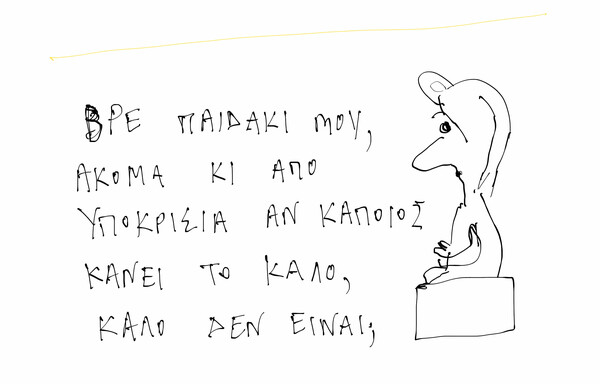 ΒΡΕ ΠΑΙΔΑΚΙ ΜΟΥ,
ΑΚΟΜΑ ΚΙ ΑΠΟ
ΥΠΟΚΡΙΣΙΑ ΑΝ ΚΑΠΟΙΟΣ
ΚΑΝΕΙ ΤΟ ΚΑΛΟ,
ΚΑΛΟ ΔΕΝ ΕΙΝΑΙ;